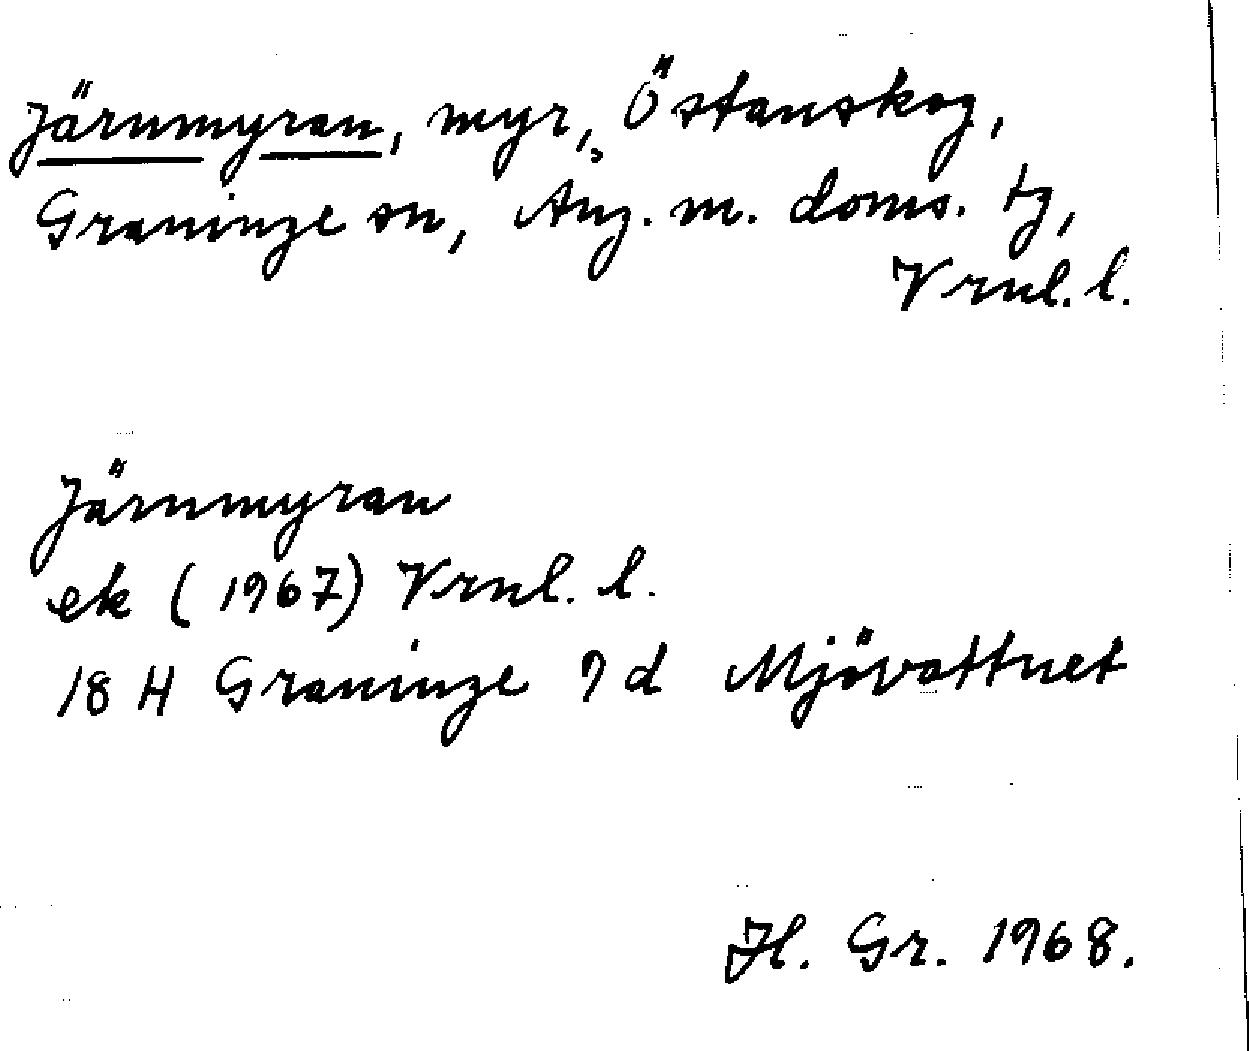 Järnmyran, myr, Östanskog,
Graninge sn, Ång. m. doms. tg,
Vrnl. l.
Järnmyran
ek (1967) Vrnl. l.
18 H Graninge 7 d Mjövattnet
Hl. Gr. 1968.